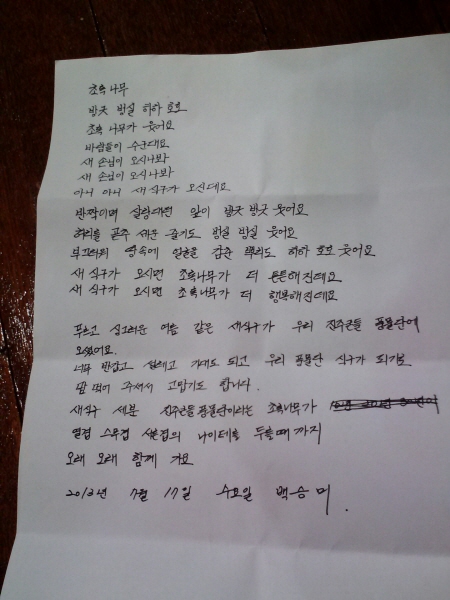 초록나무
방긋 벙실 하하 호호
초록 나무가 웃어요
바람들이 수군대요
새 손님이 오시나봐
새 손님이 오시나봐
아니 아니 새 식구가 오신대요
반짝이며 살랑대던 잎이 방긋 방긋 웃어요
허리를 곧추 세운 줄기도 벙실 벙실 웃어요
부끄러워 땅속에 얼굴을 감춘 뿌리도 하하 호호 웃어요
새 식구가 오시면 초록나무가 더 튼튼해진데요
새 식구가 오시면 초록나무가 더 행복해진데요
푸르고 싱그러운 여름 같은 새식구가 우리 진주큰들 풍물단에
오셨어요.
너무 반갑고 설레고 기대도 되고 우리 풍물단 식구가 되기로
맘 먹어 주셔서 고맙기도 합니다.
새식구 세분 진주큰들풍물단이라는 초록나무가
열겹 스무겹 서른겹의 나이테를 두를때 까지
오래 오래 함께 가요
2013년 7월 17일 수요일 백승미.